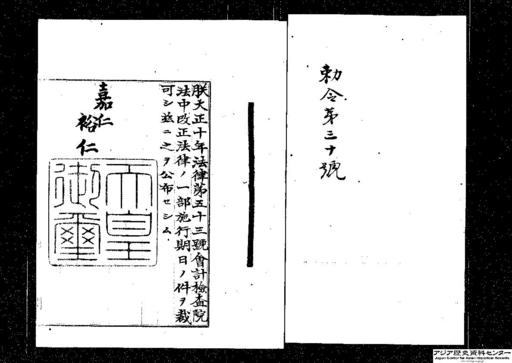 勅令第三十號
朕大正十年法律第五十三號會計檢査院
法中改正法律ノ一部施行期日ノ件ヲ裁
可シ玆ニ之ヲ公布セシム
嘉仁
裕仁
天皇
御璽
アジア歴史資料センター
Japan Center for Asian Historical Records